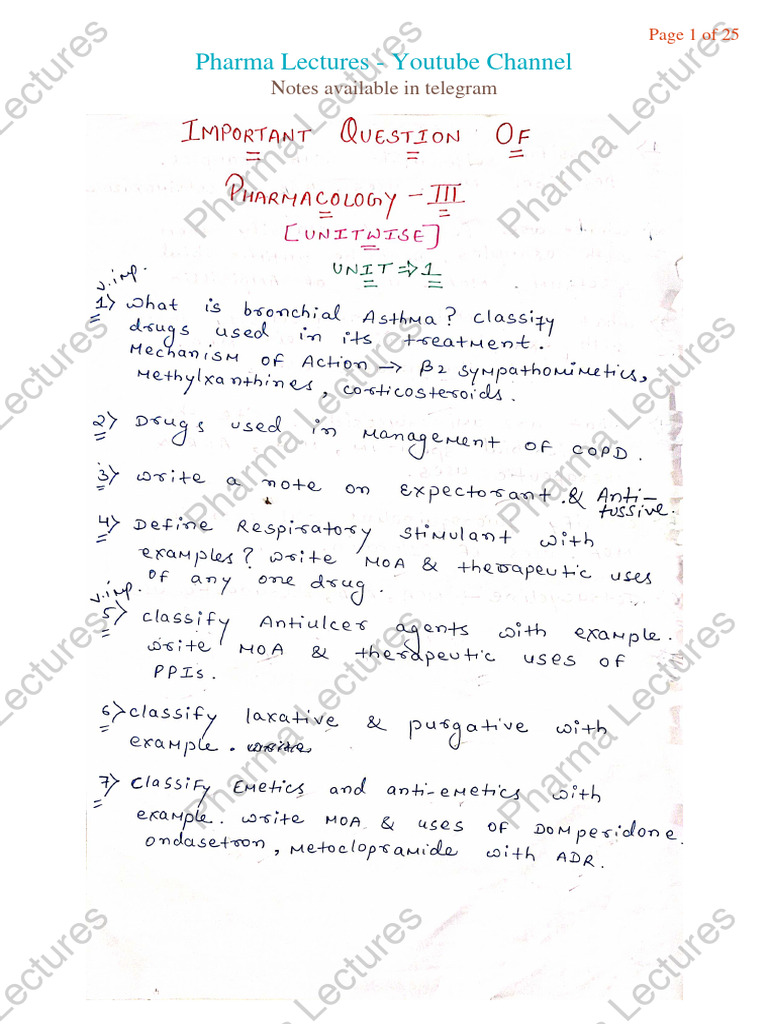 Page 1 of 25
Pharma Lectures - Youtube Channel
Notes available in telegram
IMPORTANT QUESTION OF
PHARMACOLOGY - III
[UNITWISE]
UNIT ⇒ 1
v.imp.
1) What is bronchial Asthma? Classify
drugs used in its treatment.
Mechanism of Action → β2 sympathomimetics,
Methylxanthines, corticosteroids.
2) Drugs used in management of COPD.
3) write a note on expectorant & Anti-
tussive.
4) Define Respiratory stimulant with
examples? write MOA & therapeutic uses
of any one drug.
v.imp.
5) classify Antiulcer agents with example.
write MOA & therapeutic uses of
PPIs.
6) classify laxative & purgative with
example. write
7) classify Emetics and anti-emetics with
example. write MOA & uses of Domperidone
ondasetron, Metoclopramide with ADR.
Pharma Lectures
Pharma Lectures
Pharma Lectures
Pharma Lectures
Pharma Lectures
Pharma Lectures
Lectures
Lectures
Lectures
Lectures